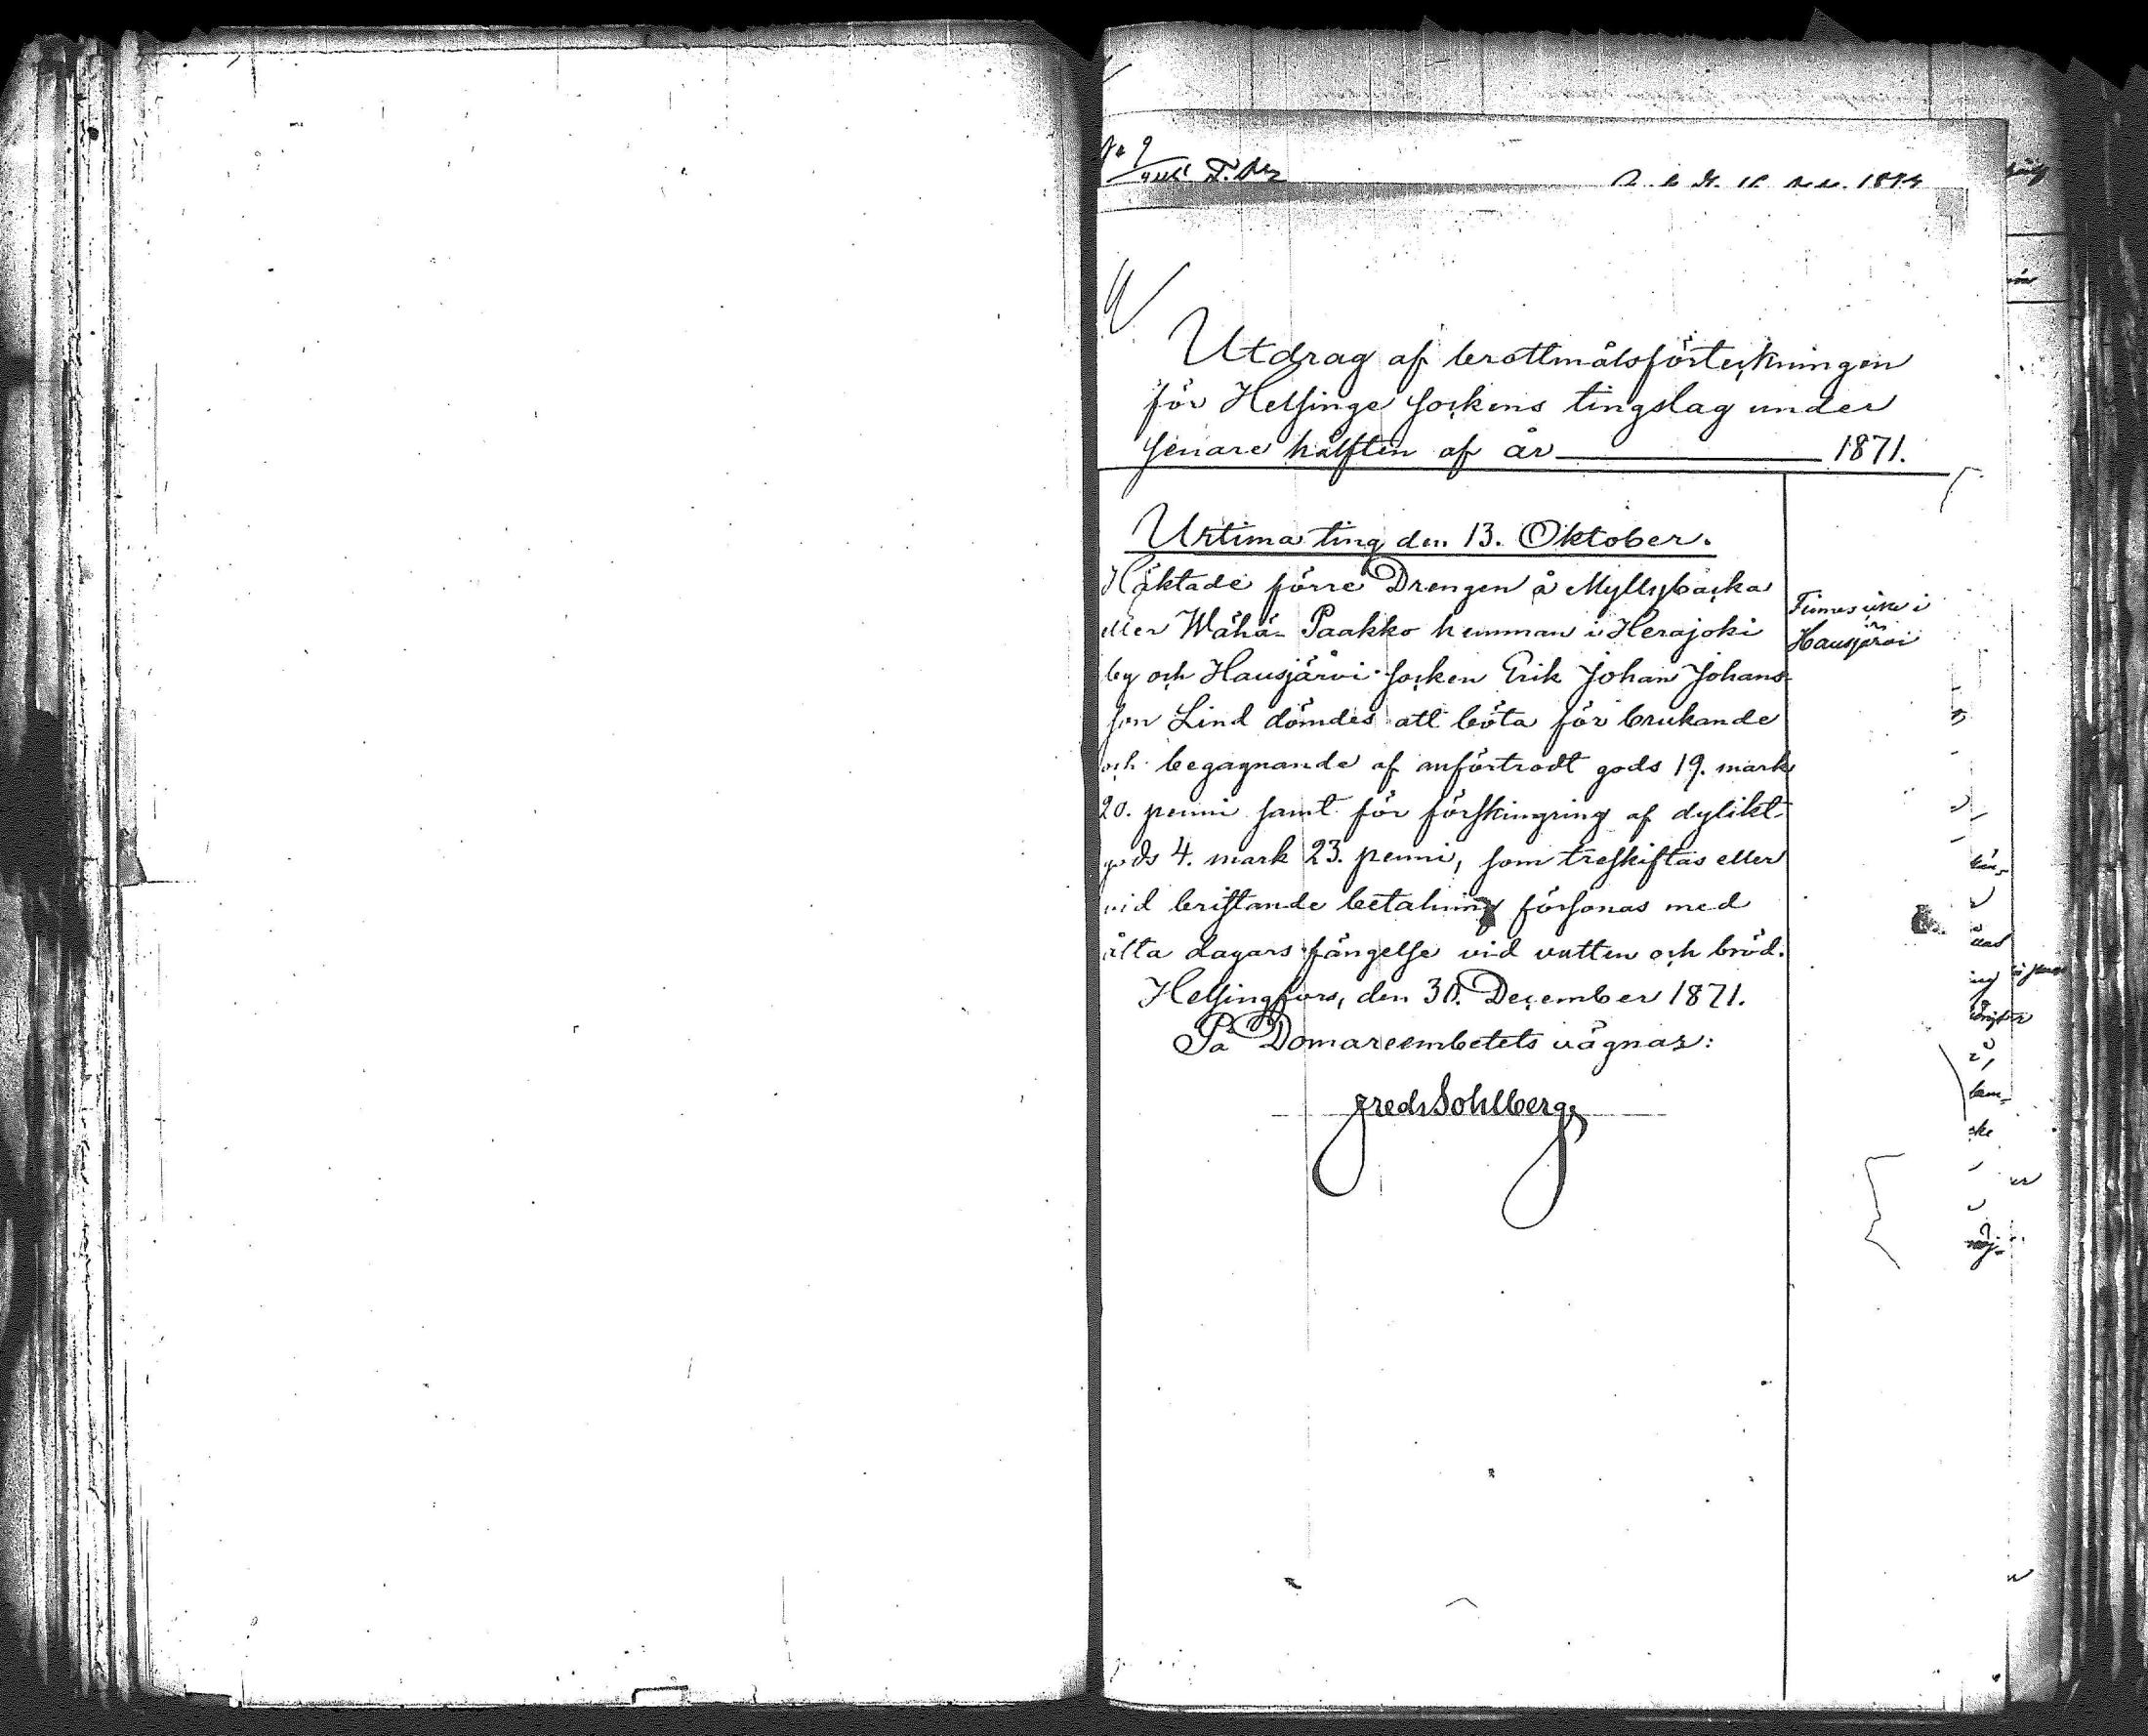 Utdrag af brottmålsförteckningen
för Helsinge sockens tingslag under
senare hälften af år 1871.
Urtima ting den 13. Oktober.
Häktade förre Drengen å Myllybacka
eller Wähä-Paakko hemman i Herajoki
by och Hausjärvi socken Erik Johan Johans-
son Lind dömdes att böta för brukande
och begagnande af anförtrodt gods 19. mark
20. penni samt för förskingring af dylikt
gods 4. mark 23. penni, som treskiftas eller
vid bristande betalning försonas med
åtta dagars fängelse vid vatten och bröd.
Helsingfors, den 30. December 1871.
På Domareembetets vägnar:
Fredr Sohlberg
Finnes icke i
Hausjärvi